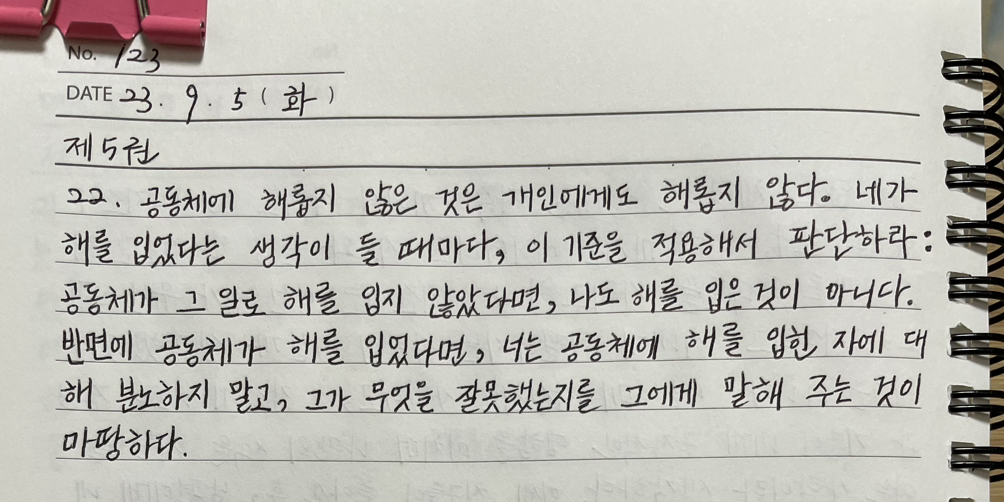 No. 123
DATE 23. 9. 5 ( 화 )
제 5권
22. 공동체에 해롭지 않은 것은 개인에게도 해롭지 않다. 네가
해를 입었다는 생각이 들 때마다, 이 기준을 적용해서 판단하라:
공동체가 그 일로 해를 입지 않았다면, 나도 해를 입은 것이 아니다.
반면에 공동체가 해를 입었다면, 너는 공동체에 해를 입힌 자에 대
해 분노하지 말고, 그가 무엇을 잘못했는지를 그에게 말해 주는 것이
마땅하다.